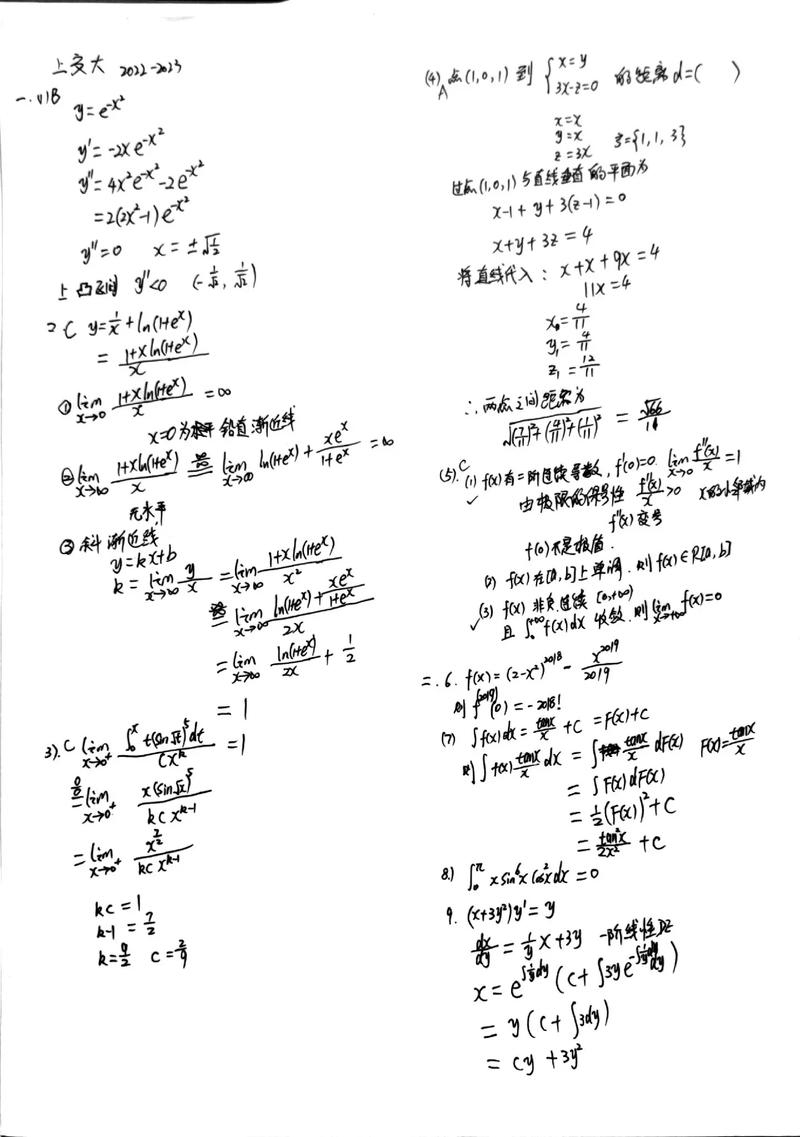 上交大 2022-2023
一.(1)B
y=e^{-x²}
y'=-2xe^{-x²}
y''=4x²e^{-x²}-2e^{-x²}
=2(2x²-1)e^{-x²}
y''=0 x=±√(1/2)
上凸区间 y''<0 (-1/√2, 1/√2)
2. C y=1/x+ln(1+e^x)
= (1+xln(1+e^x))/x
① lim_{x→0} (1+xln(1+e^x))/x =∞
x=0为 铅直渐近线
② lim_{x→∞} (1+xln(1+e^x))/x = lim_{x→∞} ln(1+e^x)+ xe^x/(1+e^x) =∞
无水平
③ 斜渐近线
y=kx+b
k=lim_{x→∞} y/x =lim_{x→∞} (1+xln(1+e^x))/x²
= lim_{x→∞} (ln(1+e^x)+ xe^x/(1+e^x))/2x
=lim_{x→∞} ln(1+e^x)/2x + 1/2
= 1
3). C lim_{x→0⁺} ∫_0^x t(sin√t)^5dt/cx^k =1
0/0= lim_{x→0⁺} x(sin√x)^5/kcx^{k-1}
=lim_{x→0⁺} x^{7/2}/kcx^{k-1}
kc=1
k-1=7/2
k=9/2 c=2/9
(4) A 点(1,0,1)到 { x=y 3x-z=0 的距离d=( )
x=x
y=x
z=3x s={1,1,3}
过点(1,0,1)与直线垂直的平面为
x-1+y+3(z-1)=0
x+y+3z=4
将直线代入: x+x+9x=4
11x=4
x₀=4/11
y₁=4/11
z₁=12/11
∴两点之间距离为
√((7/11)²+(4/11)²+(1/11)²) = √66/11
(5). C (1) f(x)有二阶连续导数, f'(0)=0. lim_{x→0} f''(x)/x=1
✓ 由极限的保号性 f''(x)/x>0 x的小邻域内
f''(x)变号
f(0)不是极值.
(2) f(x)在[a,b]上单调. 则f(x)∈R[a,b]
(3) f(x)非负连续 [0,+∞)
✓ 且∫_0^{+∞}f(x)dx 收敛. 则lim_{x→+∞} f(x)=0
二. 6. f(x)=(2-x²)^{2018} - x^{2019}/2019
则f^{(2019)}(0)=-2018!
(7) ∫f(x)dx=tanx/x +C =F(x)+C
则∫f(x)tanx/x dx = ∫tanx/x dF(x) F(x)=tanx/x
= ∫F(x)dF(x)
= 1/2(F(x))²+C
= tan²x/2x² +C
8.) ∫_0^π xsin⁶x cos²x dx=0
9. (x+3y²)y'=y
dx/dy = 1/y x+3y 一阶线性DE
x=e^{∫1/y dy}(C+∫3ye^{-∫1/y dy}dy)
= y(C+∫3dy)
= Cy+3y²